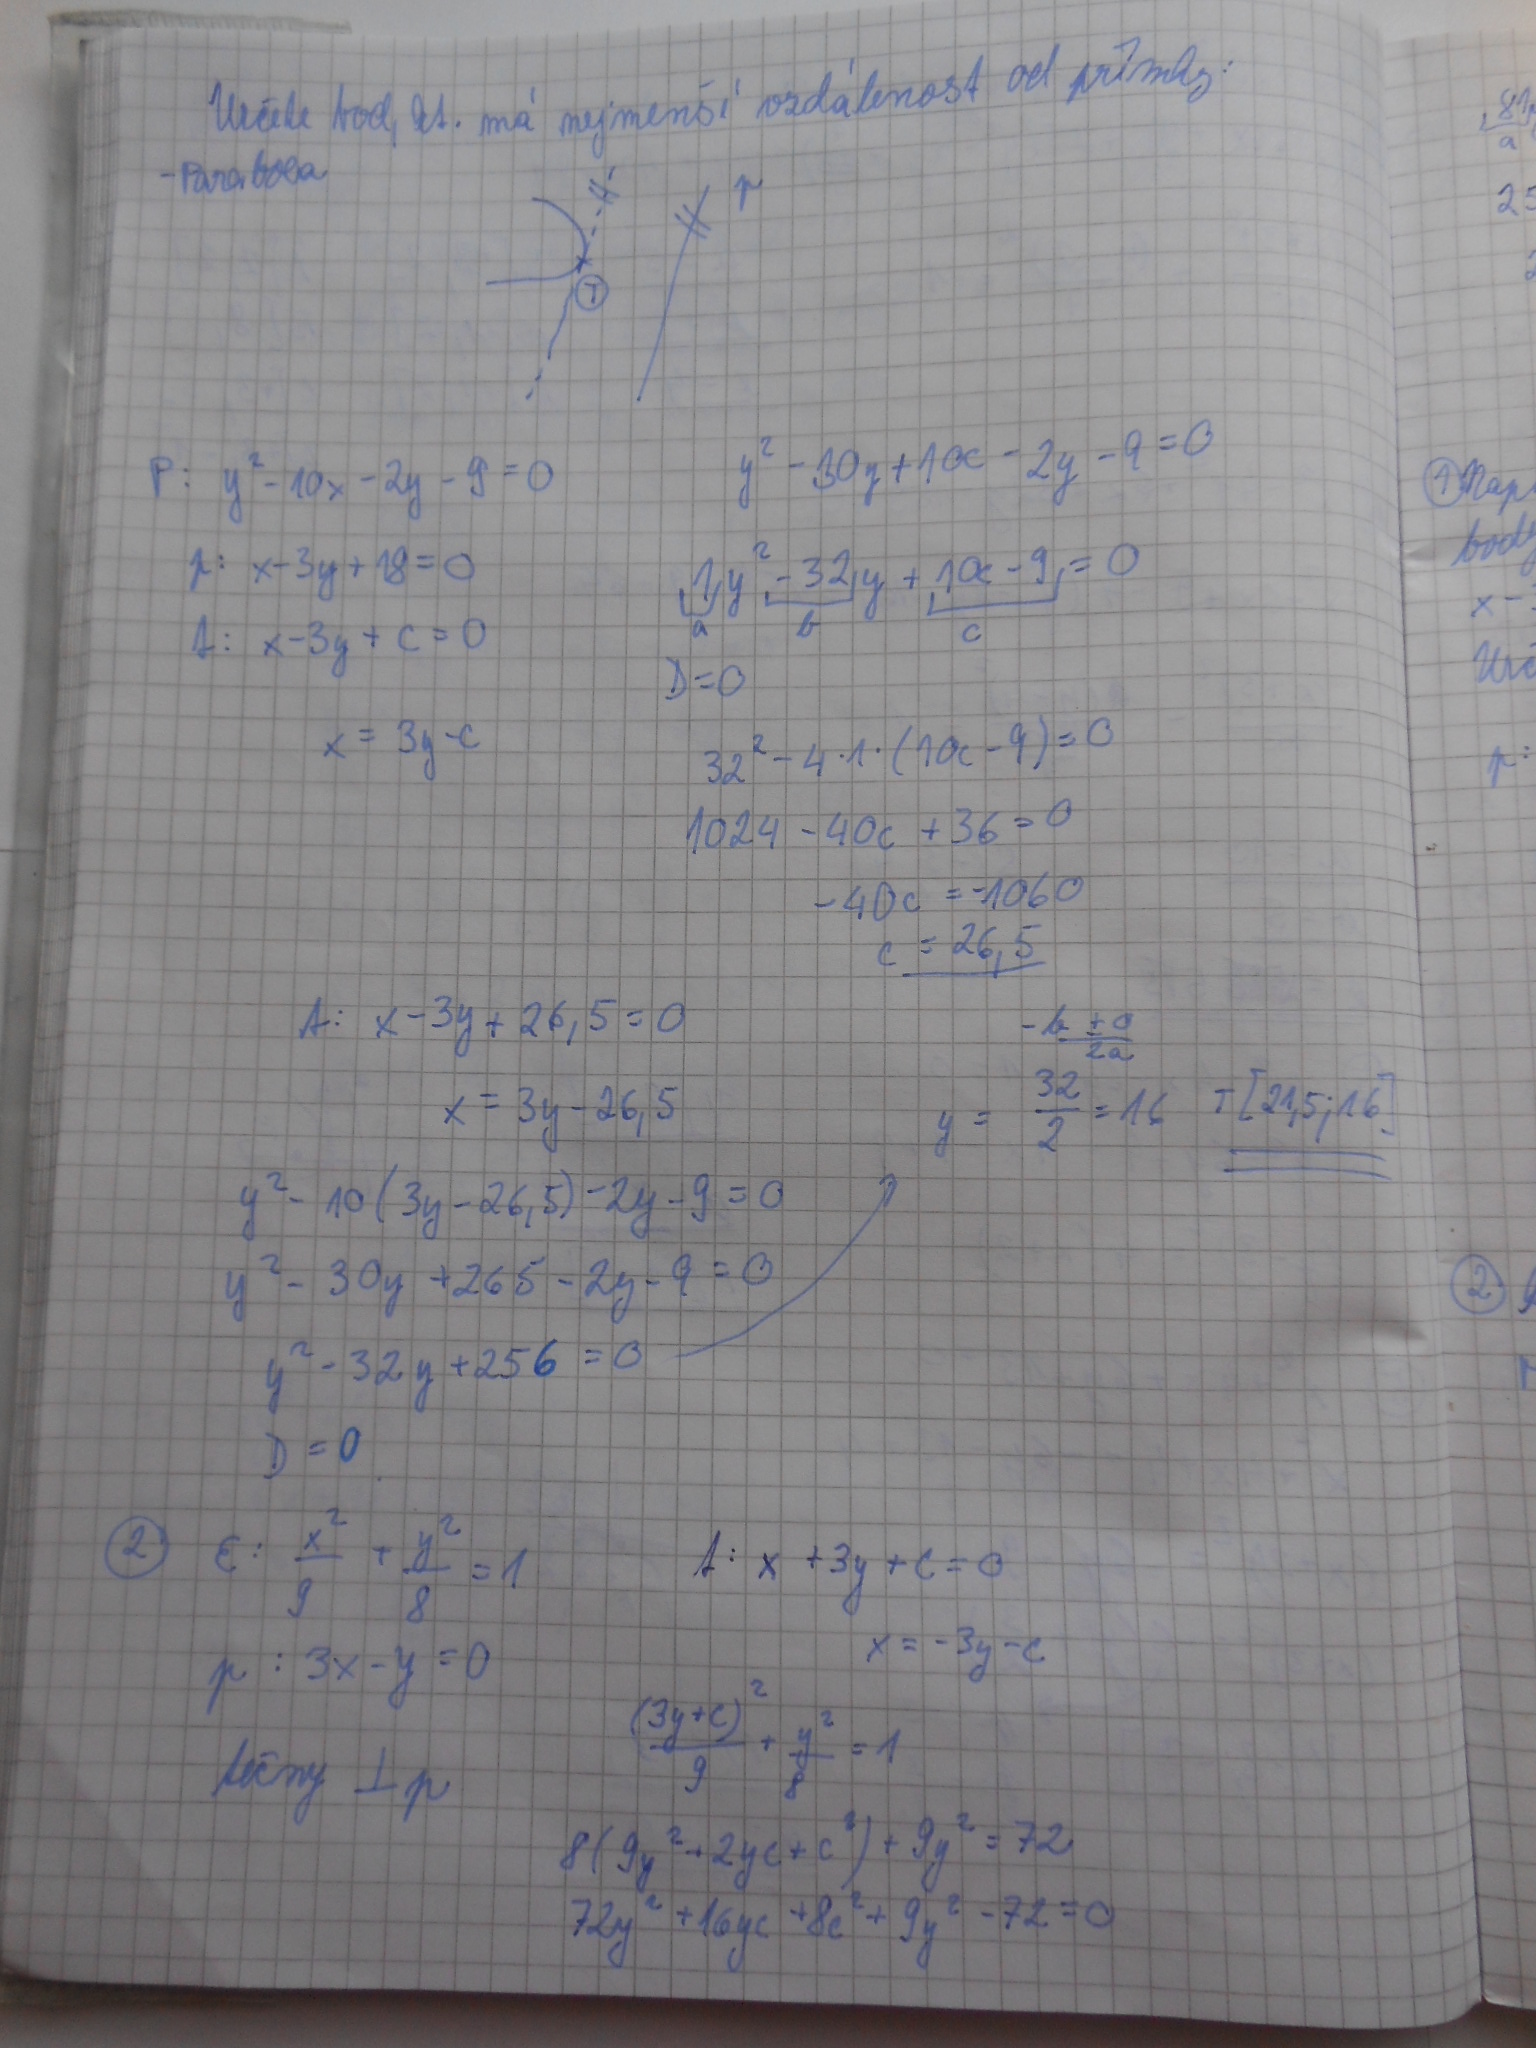 Určete bod, kt. má nejmenší vzdálenost od přímky:
- Parabola
p
T
P: y² - 10x - 2y - 9 = 0
p: x - 3y + 18 = 0
t: x - 3y + c = 0
x = 3y - c
y² - 30y + 10c - 2y - 9 = 0
1y² - 32y + 10c - 9 = 0
a b c
D = 0
32² - 4 · 1 · (10c - 9) = 0
1024 - 40c + 36 = 0
-40c = -1060
c = 26,5
t: x - 3y + 26,5 = 0
x = 3y - 26,5
y² - 10(3y - 26,5) - 2y - 9 = 0
y² - 30y + 265 - 2y - 9 = 0
y² - 32y + 256 = 0
D = 0
-b ± 0 / 2a
y = 32/2 = 16 T[21,5; 16]
② E: x²/9 + y²/8 = 1
p: 3x - y = 0
tečny ⊥ p
t: x + 3y + c = 0
x = -3y - c
(3y + c)²/9 + y²/8 = 1
8(9y² + 2yc + c²) + 9y² = 72
72y² + 16yc + 8c² + 9y² - 72 = 0
81
a
25
①
body
x -
p:
②